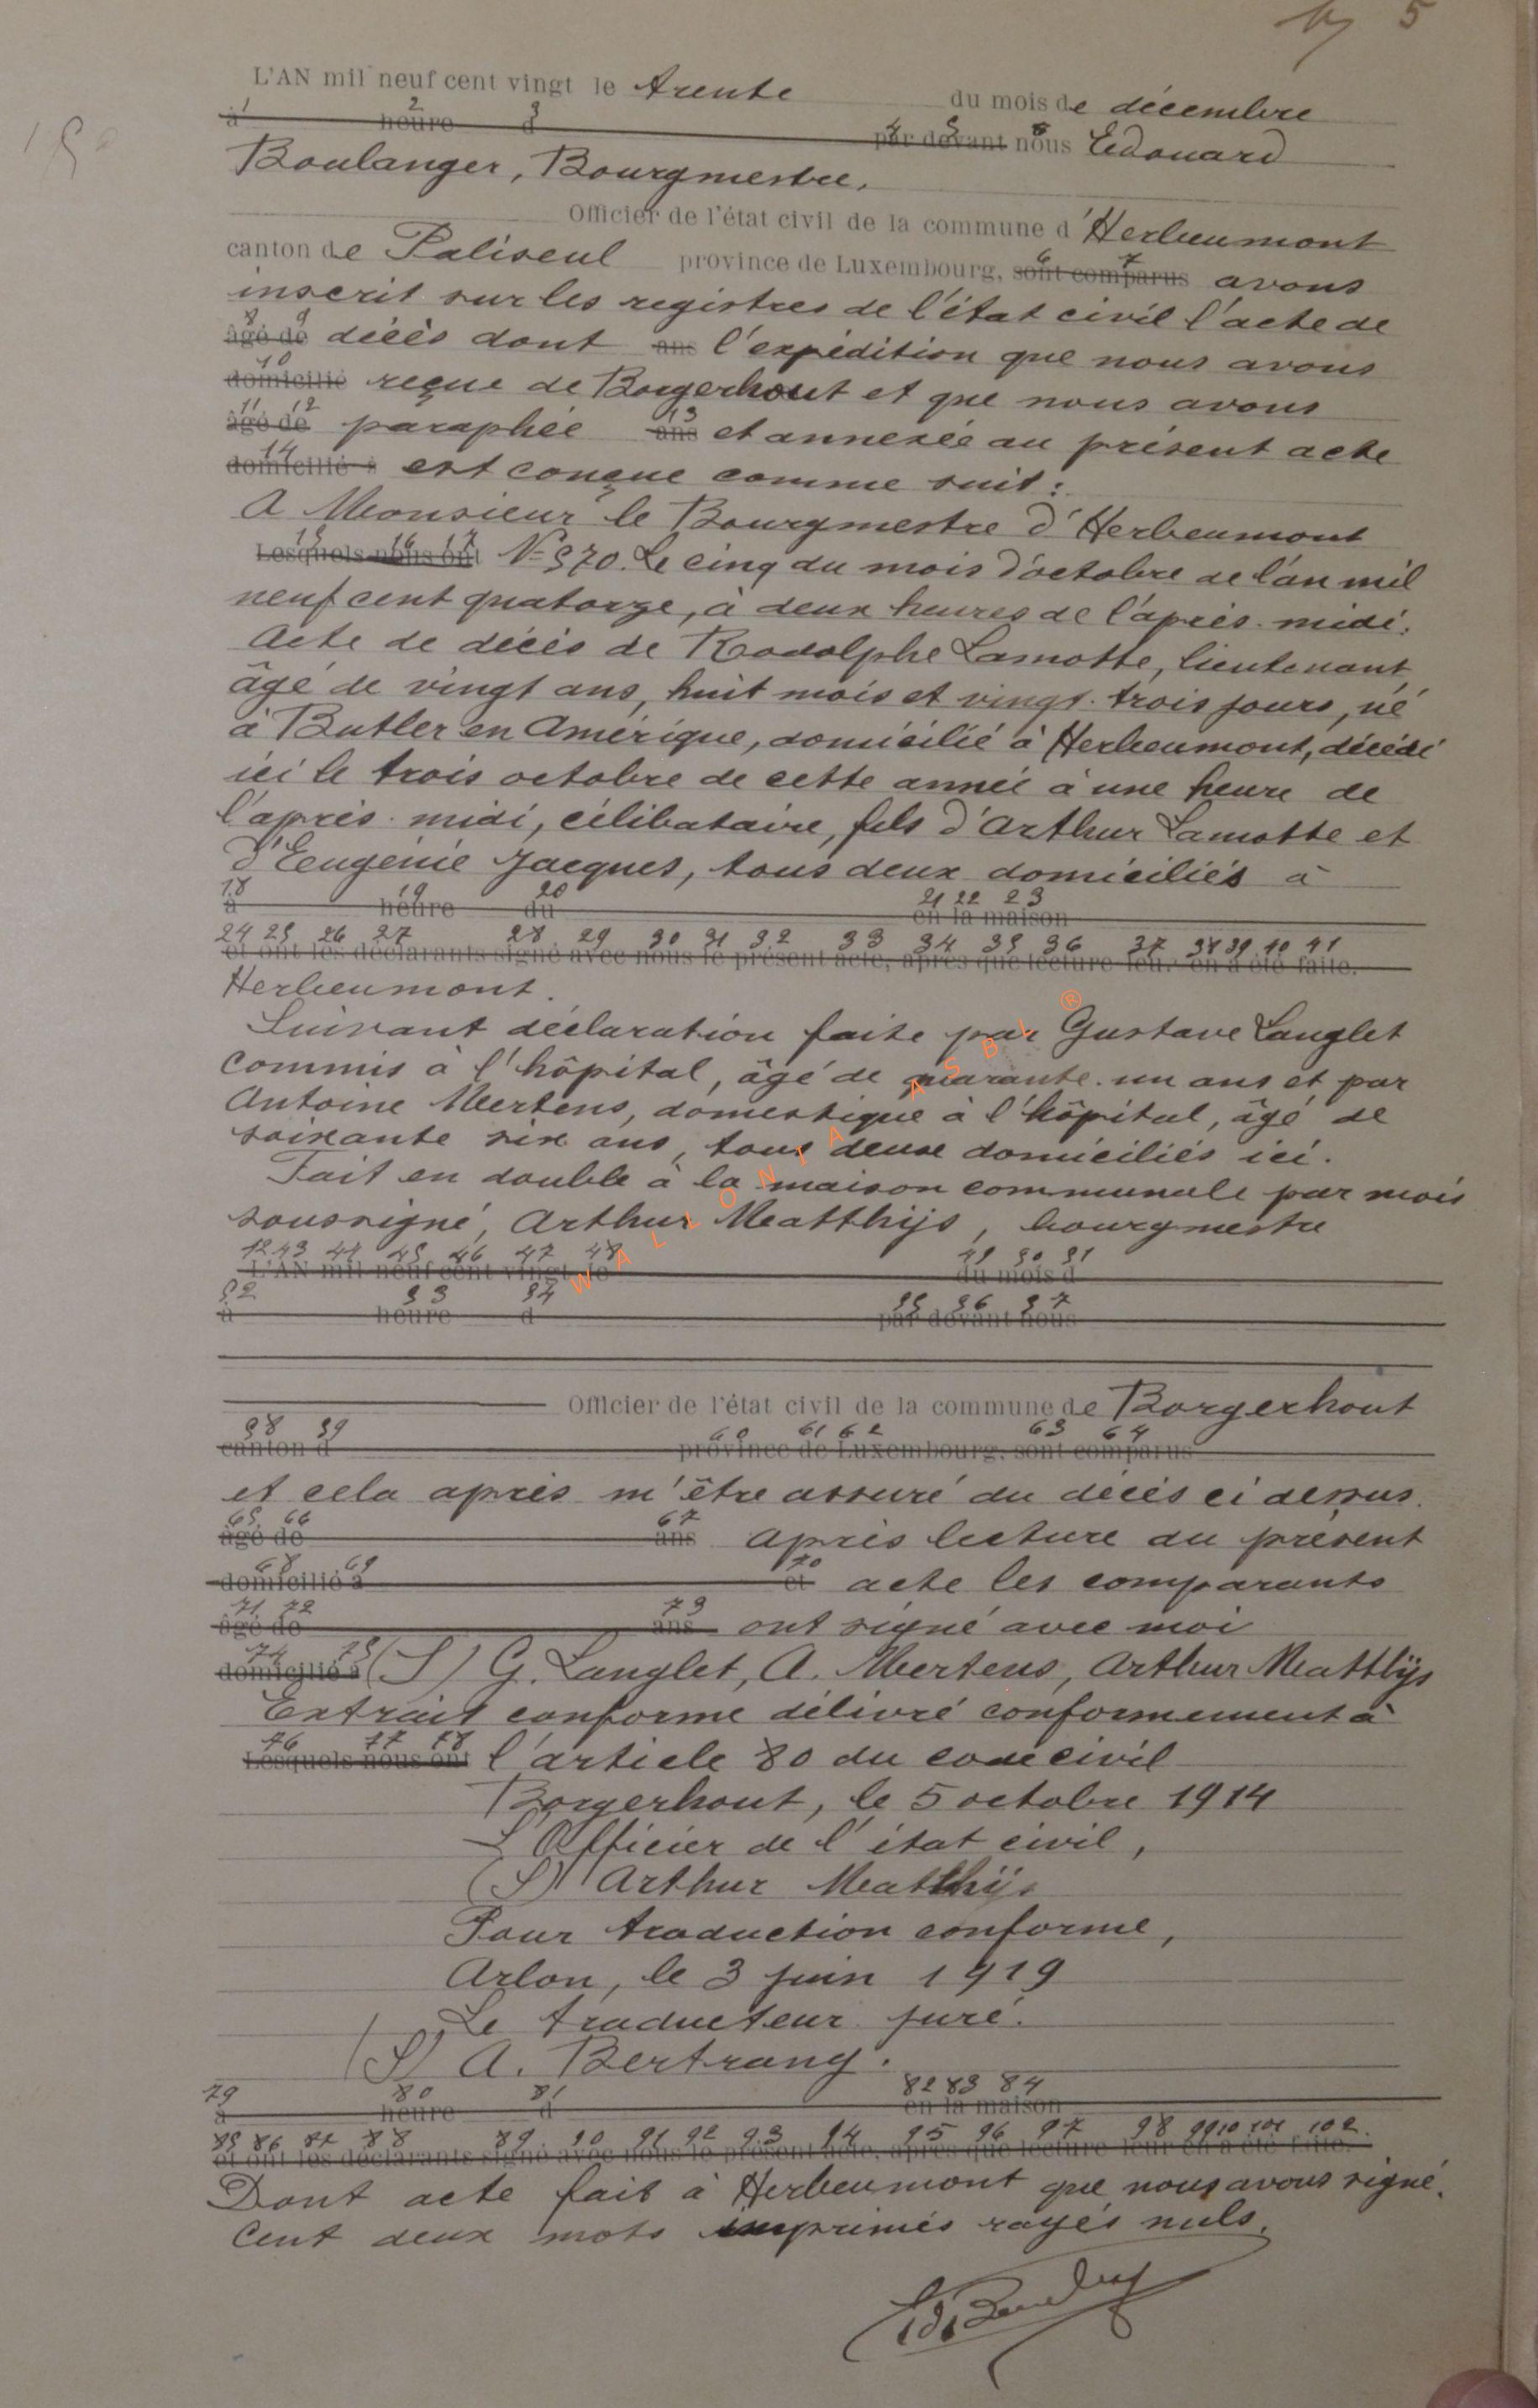 5
L'AN mil neuf cent vingt le trente du mois de décembre
1 2 3
à heure d par devant nous Edouard
4 5
Boulanger, Bourgmestre,
Officier de l'état civil de la commune d'Herbeumont
6 7
canton de Paliseul province de Luxembourg, sont comparus avons
inscrit sur les registres de l'état civil l'acte de
8 9
âgé de décès dont ans l'expédition que nous avons
10
domicilié reçue de Borgerhout et que nous avons
11 12 13
âgé de paraphée ans et annexée au présent acte
14
domicilié à est conçue comme suit :
A Monsieur le Bourgmestre d'Herbeumont
15 16 17
Lesquels nous ont N= 570. Le cinq du mois d'octobre de l'an mil
neuf cent quatorze, à deux heures de l'après-midi.
Acte de décès de Rodolphe Lamotte, lieutenant,
âgé de vingt ans, huit mois et vingt-trois jours, né
à Butler en Amérique, domicilié à Herbeumont, décédé
ici le trois octobre de cette année à une heure de
l'après-midi, célibataire, fils d'Arthur Lamotte et
d'Eugénie Jacques, tous deux domiciliés à
18 19 20 21 22 23
à heure du en la maison
24 25 26 27 28 29 30 31 32 33 34 35 36 37 38 39 40 41
et ont les déclarants signé avec nous le présent acte, après que lecture leur en a été faite.
Herbeumont.
Suivant déclaration faite par Gustave Langlet
commis à l'hôpital, âgé de quarante-un ans et par
Antoine Mertens, domestique à l'hôpital, âgé de
soixante six ans, tous deux domiciliés ici.
Fait en double à la maison communale par mois
soussigné, Arthur Matthijs, bourgmestre
42 43 44 45 46 47 48 49 50 51
L'AN mil neuf cent vingt le du mois d
52 53 54 55 56 57
à heure d par devant nous
Officier de l'état civil de la commune de Borgerhout
58 59 60 61 62 63 64
canton d province de Luxembourg, sont comparus
et cela après m'être assuré du décès ci dessus.
65 66 67
âgé de ans Après lecture du présent
68 69 70
domicilié à et acte les comparants
71 72 73
âgé de ans ont signé avec moi
74 75
domicilié à (S) G. Langlet, A. Mertens, Arthur Matthijs
Extrait conforme délivré conformement à
76 77 78
Lesquels nous ont l'article 80 du code civil
Borgerhout, le 5 octobre 1914
L'Officier de l'état civil,
(S) Arthur Matthijs
Pour traduction conforme,
Arlon, le 3 juin 1919
Le traducteur juré.
(S) A. Bertrang.
79 80 81 82 83 84
à heure d en la maison
85 86 87 88 89 90 91 92 93 94 95 96 97 98 99 10 101 102
et ont les déclarants signé avec nous le présent acte, après que lecture leur en a été faite.
Dont acte fait à Herbeumont que nous avons signé.
Cent deux mots imprimés rayés nuls.
WALLONIA ASBL ®